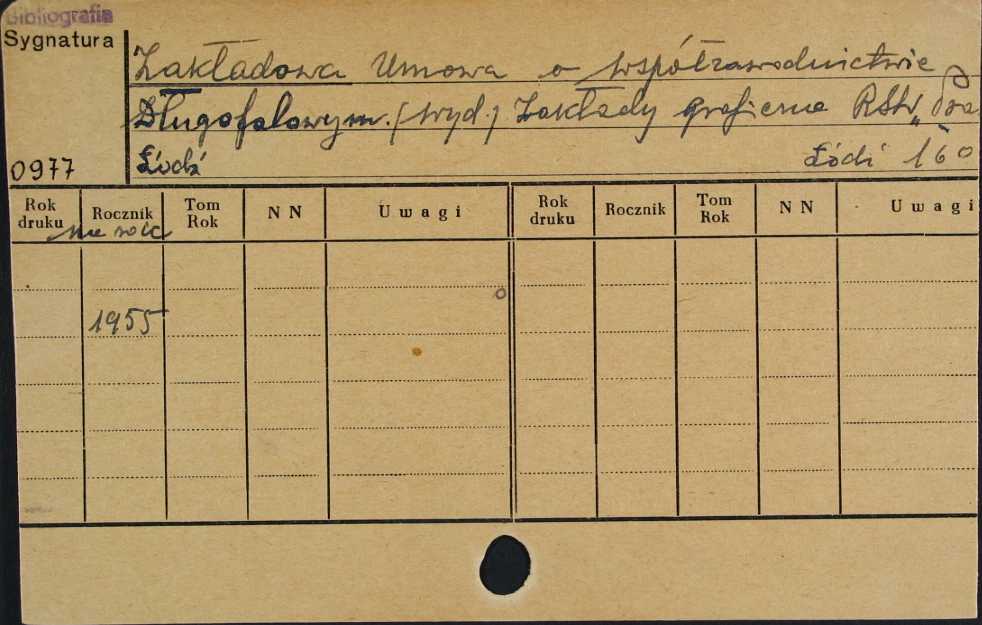 Bibliografia
Sygnatura
Zakładowa Umowa o współzawodnictwie
Długofalowym. (wyd.) Zakłady graficzne RSW „Pra
Łódź Łódź 160
0977
Rok druku Rocznik Tom Rok NN Uwagi Rok druku Rocznik Tom Rok NN Uwagi
1955